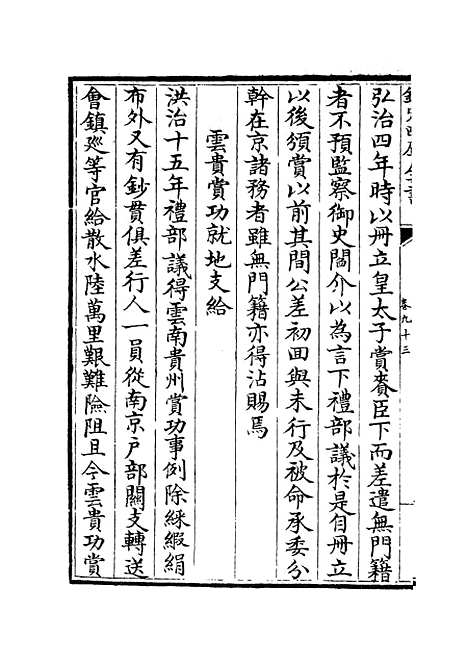 弘治四年時以冊立皇太子賞賚臣下而差遣無門籍
者不預監察御史閻介以為言下禮部議於是自冊立
以後頒賞以前其間公差初回與未行及被命承委分
幹在京諸務者雖無門籍亦得沾賜焉
雲貴賞功就地支給
洪治十五年禮部議得雲南貴州賞功事例除綵緞絹
布外又有鈔貫俱差行人一員從南京戶部關支轉送
會鎮廵等官給散水陸萬里艱難險阻且今雲貴功賞
卷九十三